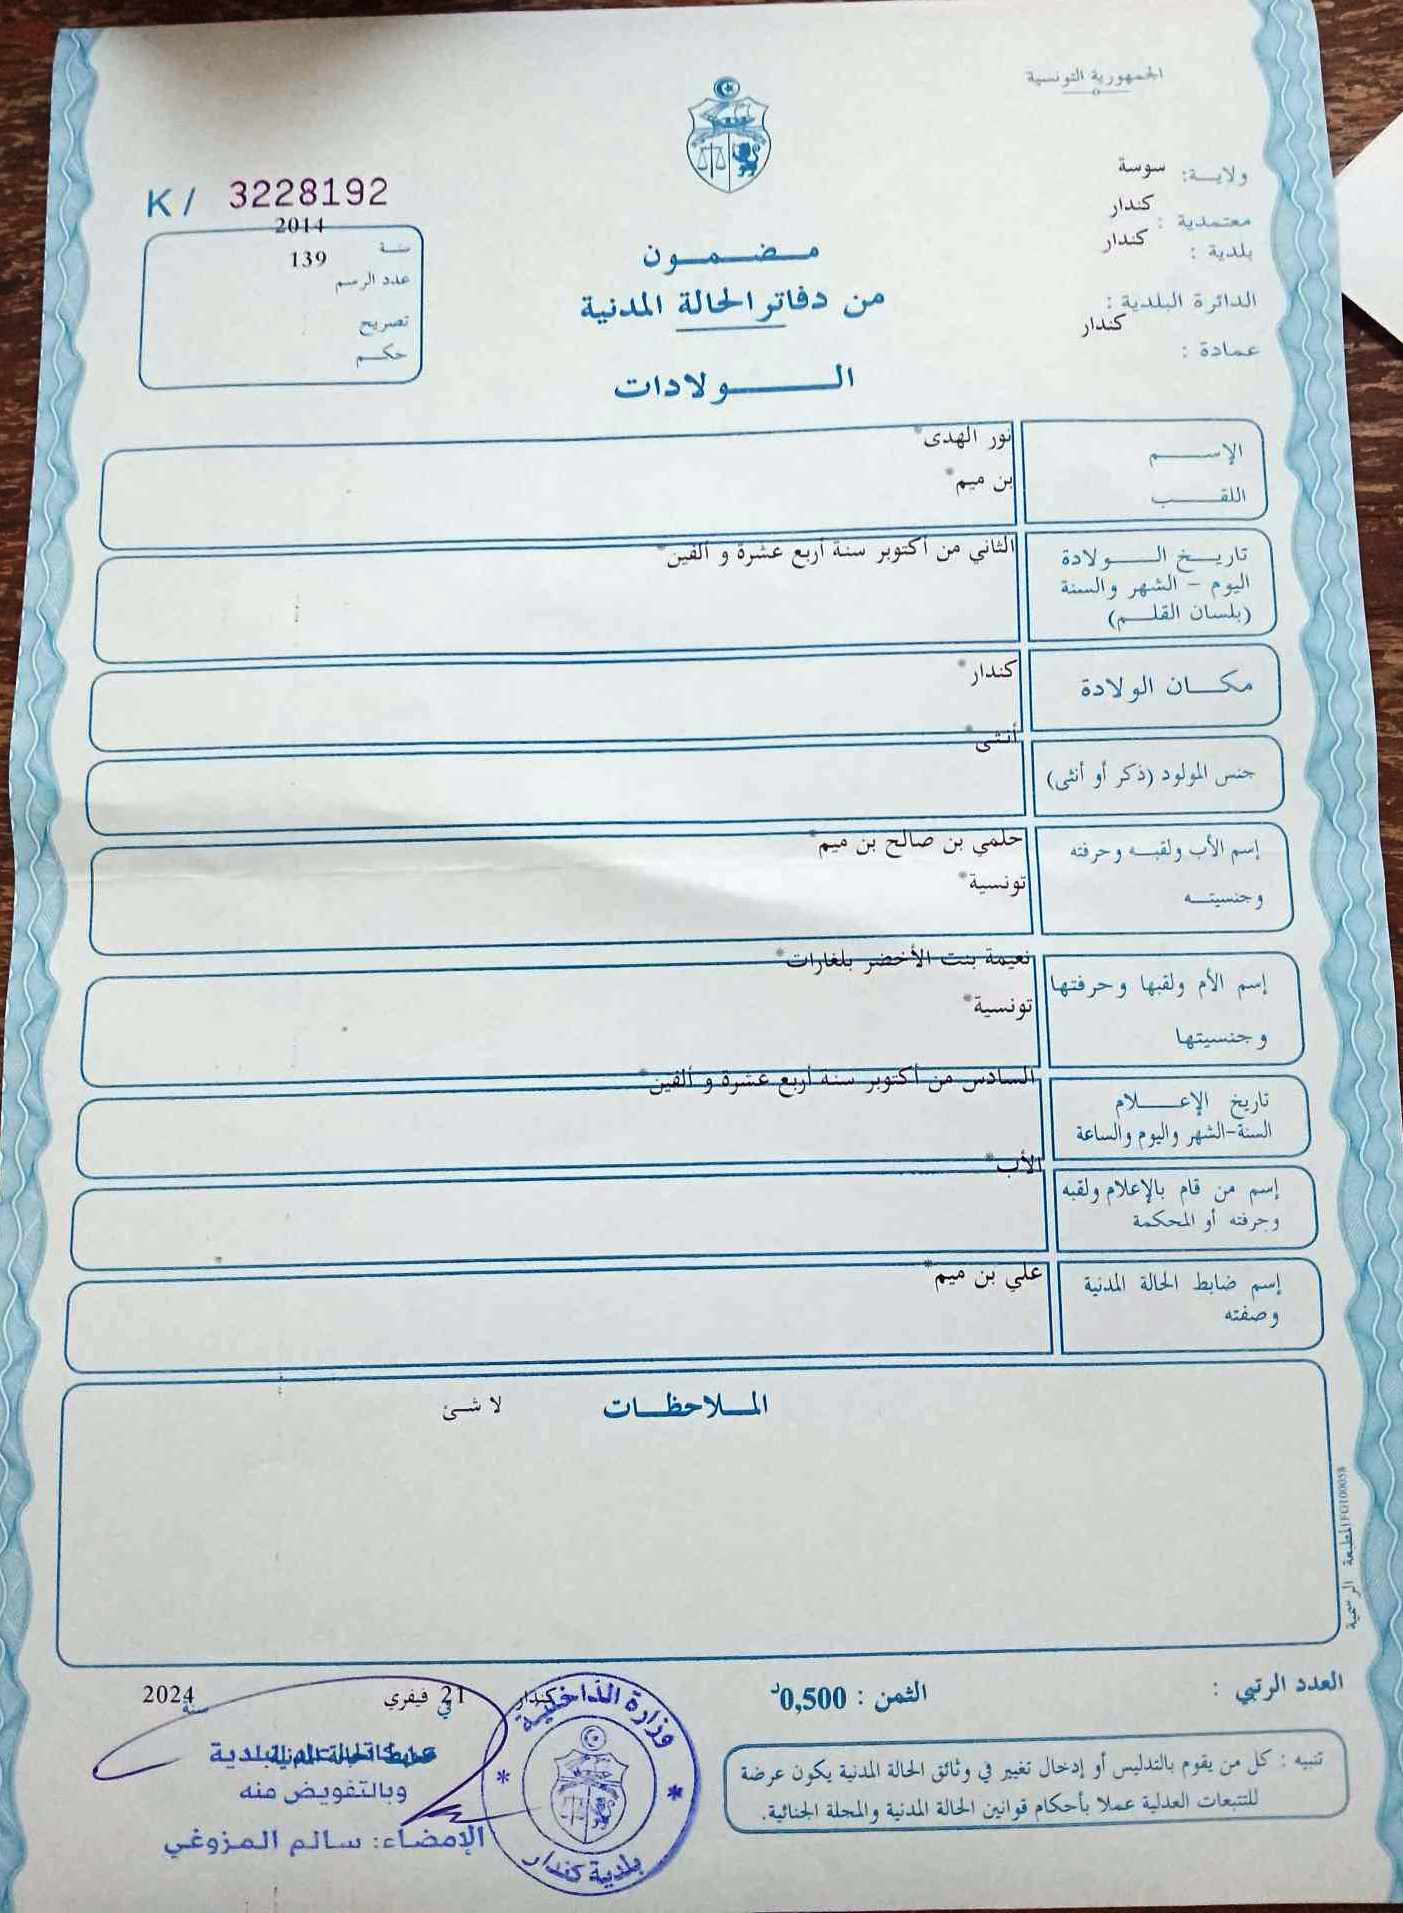 الجمهورية التونسية
ولاية: سوسة
معتمدية : كندار
بلدية : كندار
الدائرة البلدية :
عمادة : كندار
K / 3228192
سنة 2014
عدد الرسم 139
تصريح
حكم
مضمون
من دفاتر الحالة المدنية
الولادات
الإسم نور الهدى*
اللقب بن ميم*
تاريخ الولادة الثاني من أكتوبر سنة أربع عشرة و ألفين*
اليوم - الشهر والسنة
(بلسان القلم)
مكان الولادة كندار*
جنس المولود (ذكر أو أنثى) أنثى*
إسم الأب ولقبه وحرفته حلمي بن صالح بن ميم*
وجنسيته تونسية*
إسم الأم ولقبها وحرفتها نعيمة بنت الأخضر بلغارات*
وجنسيتها تونسية*
تاريخ الإعلام السادس من أكتوبر سنة أربع عشرة و ألفين*
السنة-الشهر واليوم والساعة
إسم من قام بالإعلام ولقبه الأب*
وحرفته أو المحكمة
إسم ضابط الحالة المدنية علي بن ميم*
وصفته
الملاحظات لا شئ
المطبعة الرسمية
العدد الرتبي :
الثمن : 0,500د
كندار في 21 فيفري سنة 2024
وبالتفويض منه
الإمضاء: سالم المزوغي
وزارة الداخلية
* *
بلدية كندار
تنبيه : كل من يقوم بالتدليس أو إدخال تغيير في وثائق الحالة المدنية يكون عرضة
للتتبعات العدلية عملا بأحكام قوانين الحالة المدنية والمجلة الجنائية.